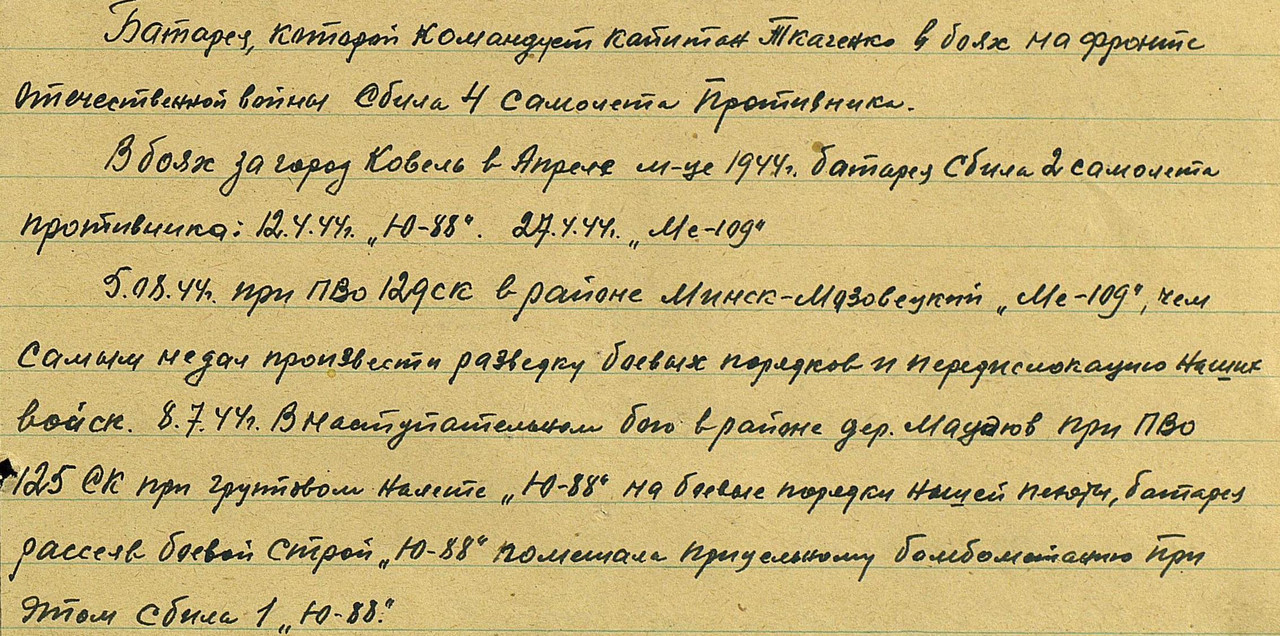 Батарея, которой командует капитан Ткаченко в боях на фронте
отечественной войны сбила 4 самолета противника.
В боях за город Ковель в Апреле м-це 1944г. батарея сбила 2 самолета
противника: 12.4.44г. „Ю-88“. 27.4.44г. „Ме-109“
5.08.44г. при ПВО 129СК в районе Минск-Мазовецкий „Ме-109“, чем
самым не дал произвести разведку боевых порядков и передислокацию наших
войск. 8.7.44г. В наступательном бою в районе дер. при ПВО
125 СК при групповом налете „Ю-88“ на боевые порядки нашей пехоты, батарея
рассеяв боевой строй „Ю-88“ помешала прицельному бомбометанию при
этом сбила 1 „Ю-88.“